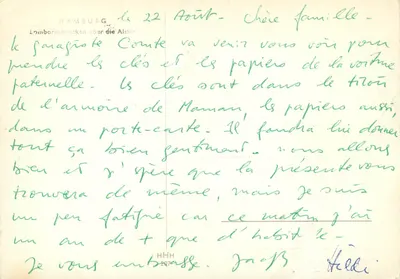 HAMBURG
Lombardsbrücke über die Alster
le 22 Août. - Chère famille -
le garagiste Comte va venir vous voir pour
prendre les clés et les papiers de la voiture
paternelle. Les clés sont dans le tiroir
de l'armoire de Maman, les papiers aussi,
dans un porte-carte. Il faudra lui donner
tout ça bien gentiment. nous allons
bien et j'espère que la présente vous
trouvera de même, mais je suis
un peu fatigué car ce matin j'ai
un an de + que d'habit
Je vous embrasse. Hildi